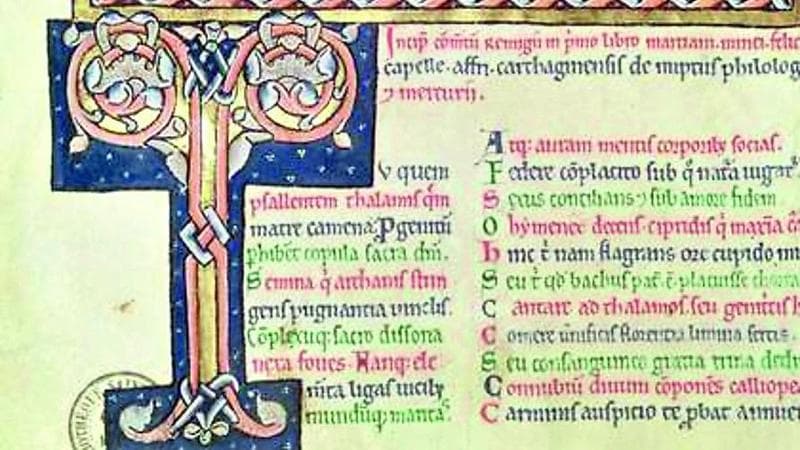 Incip̄ com̄tū Remigii in p̄mo libro martiani. minei. felic
capelle. affri. cartaginensis de nuptiis philolog
⁊ mercurii.
Tu quem
psallentem thalamis q̄m
matre camena. Pgenitū
phibēt copula sacra dm̄.
Semina q̄ archanis strin
gens pugnantia vinclis.
Cōplexuq; sacro dissona
nexa foves. Nanq; ele
m̄ta ligas vicib;
mundūq; maritas.
Atq; auram mentis corporib; socias.
Federe cōplacito sub q̄ nat̄a iugat᷑
Sexus concilians ⁊ sub amore fidem
O hymenee decens. cipridis q̄ maxīa c̄a
hinc t̄ nam flagrans ore cupido mi
Seu t̄ qd̄ bachus pat̄. ē placuisse chorea
Cantare ad thalamos. seu genit̄is h
Comere v̄nificis florentia limina sertis.
Seu consanguineo gratia trina dedit
Connubiū divum cōponēs calliopea
Carminis auspicio te pbat annuer